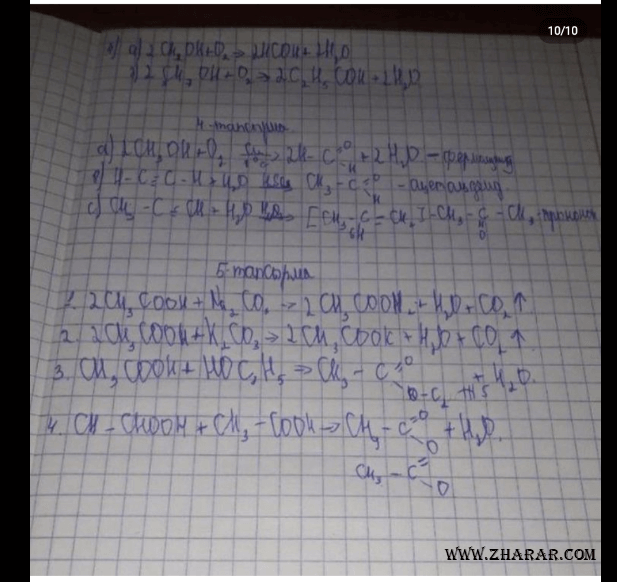 10/10
а) 2CH₃OH+O₂→2HCOH+2H₂O
OH+O₂→2C₂H₅COH+2H₂O
4-тапсырма
а) 2CH₃OH+O₂ → 2H-C=O H +2H₂O – формальдегид
в) H-C≡C-H+H₂O → CH₃-C=O H - ацетальдегид
с) CH₃-C≡CH+H₂O → [CH₃-C=CH₂]-CH₃-C-CH₃ OH O
5-тапсырма
1. 2CH₃COOH+Na₂CO₃→2CH₃COONa+H₂O+CO₂↑
2. 2CH₃COOH+K₂CO₃→2CH₃COOK+H₂O+CO₂↑
3. CH₃COOH+HOC₂H₅→CH₃-C=O O-C₂H₅ +H₂O.
4. CH-CHOOH+CH₃-COOH→CH₃-C=O O +H₂O.
CH₃-C= O
WWW.ZHARAR.COM